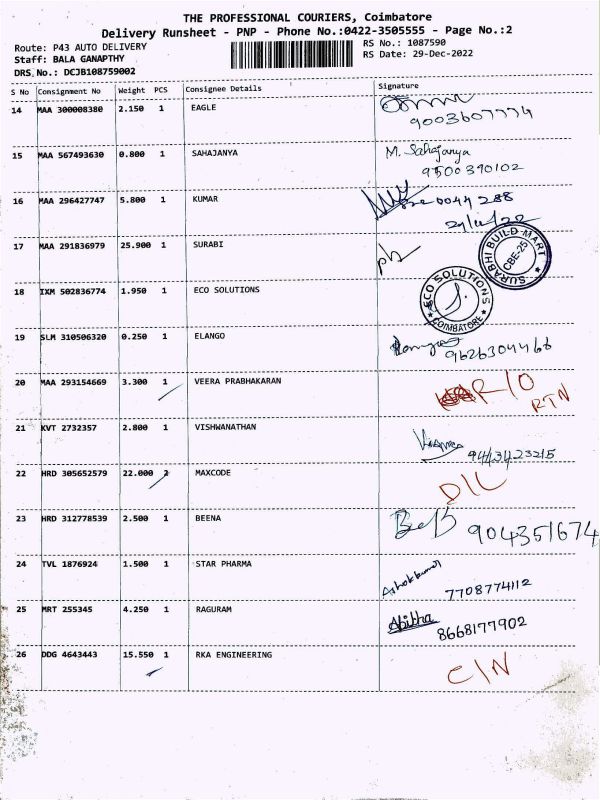 THE PROFESSIONAL COURIERS, Coimbatore
Delivery Runsheet - PNP - Phone No.:0422-3505555 - Page No.:2
Route: P43 AUTO DELIVERY
RS No.: 1087590
Staff: BALA GANAPTHY
RS Date: 29-Dec-2022
DRS No.: DCJB108759002
S No Consignment No Weight PCS Consignee Details Signature
14 MAA 300008380 2.150 1 EAGLE
9003607774
15 MAA 567493630 0.800 1 SAHAJANYA M. Sahajanya
9500390102
16 MAA 296427747 5.800 1 KUMAR
17 MAA 291836979 25.900 1 SURABI
SURABHI BUILD-MART
CBE-25
18 IXM 502836774 1.950 1 ECO SOLUTIONS
ECO SOLUTIONS
COIMBATORE
19 SLM 310506320 0.250 1 ELANGO
9626304466
20 MAA 293154669 3.300 1 VEERA PRABHAKARAN
RTN
21 KVT 2732357 2.800 1 VISHWANATHAN
9443423215
22 HRD 305652579 22.000 2 MAXCODE
D/L
23 HRD 312778539 2.500 1 BEENA
904351674
24 TVL 1876924 1.500 1 STAR PHARMA
Ashokkumar
7708774112
25 MRT 255345 4.250 1 RAGURAM
Abitha
8668177902
26 DDG 4643443 15.550 1 RKA ENGINEERING
C/N